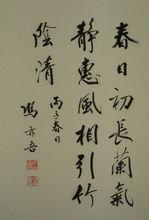 春日初長蘭氣
靜惠風相引竹
陰清
丙子春日
馮亦吾